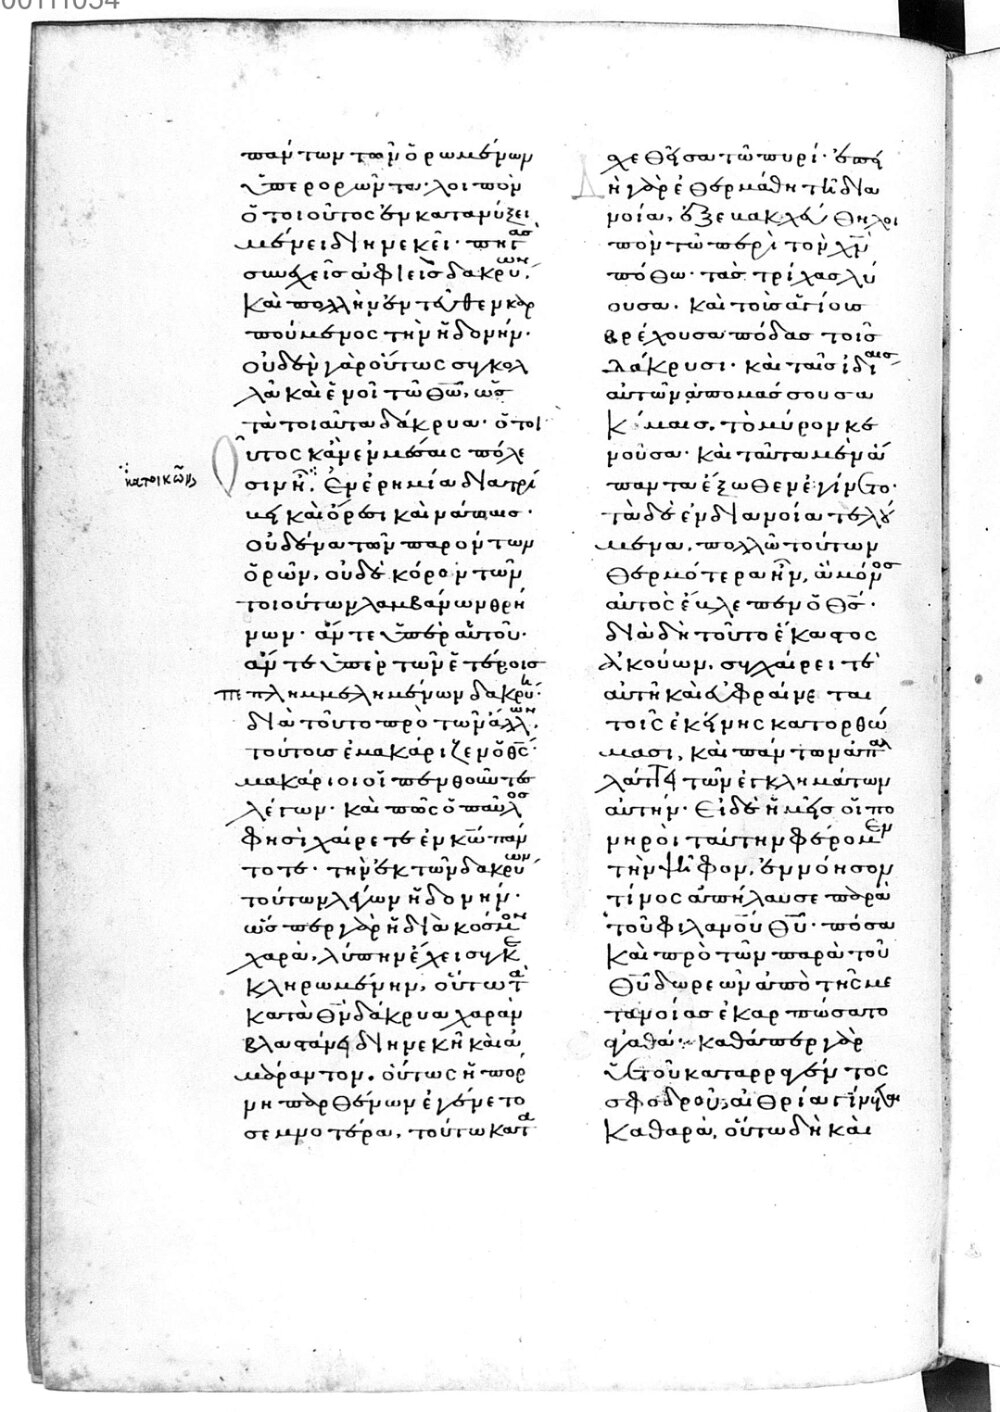 00111034
πάντων τῶν ὁρωμένων
ὑπερορῶντα· λοιπὸν
ὁ τοιοῦτος ἐν κατανύξει
μένει διηνεκεῖ· πηγὰς
συνεχεῖς ἀφιεὶς δακρύων·
καὶ πολλὴν ἐντεῦθεν καρ
πούμενος τὴν ἡδονήν·
οὐδὲν γὰρ οὕτως συγκολ
λᾶ καὶ ἑνοῖ τῶ θεῶ, ὡς
τὰ τοιαῦτα δάκρυα· ὁ τοι
οῦτος κἂν ἐν μέσαις πόλε
κατοικῶν
σιν ἦ· Ἐν ἐρημία διατρί
βει καὶ ὄρεσι καὶ νάπαις·
οὐδένα τῶν παρόντων
ὁρῶν, οὐδὲ κόρον τῶν
τοιούτων λαμβάνων θρή
νων· ἄν τε ὑπὲρ αὑτοῦ·
ἄν τε ὑπὲρ τῶν ἑτέροις
πεπλημμελημένων δακρύη·
διὰ τοῦτο πρὸ τῶν ἄλλων
τούτους ἐμακάριζεν ὁ θς·
μακάριοι οἱ πενθοῦντες
λέγων· καὶ πῶς ὁ παῦλος
φησὶ χαίρετε ἐν κω πάν
τοτε· τὴν ἐκ τῶν δακρύων
τούτων λέγων ἡδονήν·
ὥσπερ γὰρ ἡ διὰ κόσμον
χαρὰ, λύπην ἔχει συγκε
κληρωμένην, οὕτω τὰ
κατὰ θν δάκρυα χαρὰν
βλαστάνει διηνεκῆ καὶ ἀ
μάραντον. οὕτως ἡ πόρ
νη παρθένων ἐγένετο
σεμνοτέρα, τούτω κατα
χεθεῖσα τῶ πυρί· ἐπει
δὴ γὰρ ἐθερμάνθη τὴν διά
νοιαν, ἐξεβακχεύθη λοι
πὸν τῶ περὶ τὸν χν
πόθω· τὰς τρίχας λύ
ουσα· καὶ τοὺς ἁγίους
βρέχουσα πόδας τοῖς
δάκρυσι· καὶ ταῖς ἰδίαις
αὐτῶν ἀπομάσσουσα
κόμαις, τὸ μύρον κε
νοῦσα· καὶ ταῦτα μὲν ἅ
παντα ἔξωθεν ἐγίνετο·
τὰ δὲ ἐν διανοία τελού
μενα, πολλῶ τούτων
θερμότερα ἦν, ἃ μόνος
αὐτὸς ἔβλεπεν ὁ θς·
διὰ δὴ τοῦτο ἕκαστος
ἀκούων, συγχαίρει τε
αὐτῆ καὶ εὐφραίνεται
τοῖς ἐκείνης κατορθώ
μασι, καὶ πάντων ἀπαλ
λάττει τῶν ἐγκλημάτων
αὐτήν· Εἰ δὲ ἡμεῖς οἱ πο
νηροὶ ταύτην φέρομεν
τὴν ψῆφον, ἐννόησον
τίνος ἀπήλαυσε παρὰ
τοῦ φιλανου θυ· πόσα
καὶ πρὸ τῶν παρὰ τοῦ
θυ δωρεῶν ἀπὸ τῆς με
τανοίας ἐκαρπώσατο
ἀγαθά· καθάπερ γὰρ
ὑετοῦ καταρραγέντος
σφοδροῦ, αἰθρία γίνεται
καθαρὰ, οὕτω δὴ καὶ